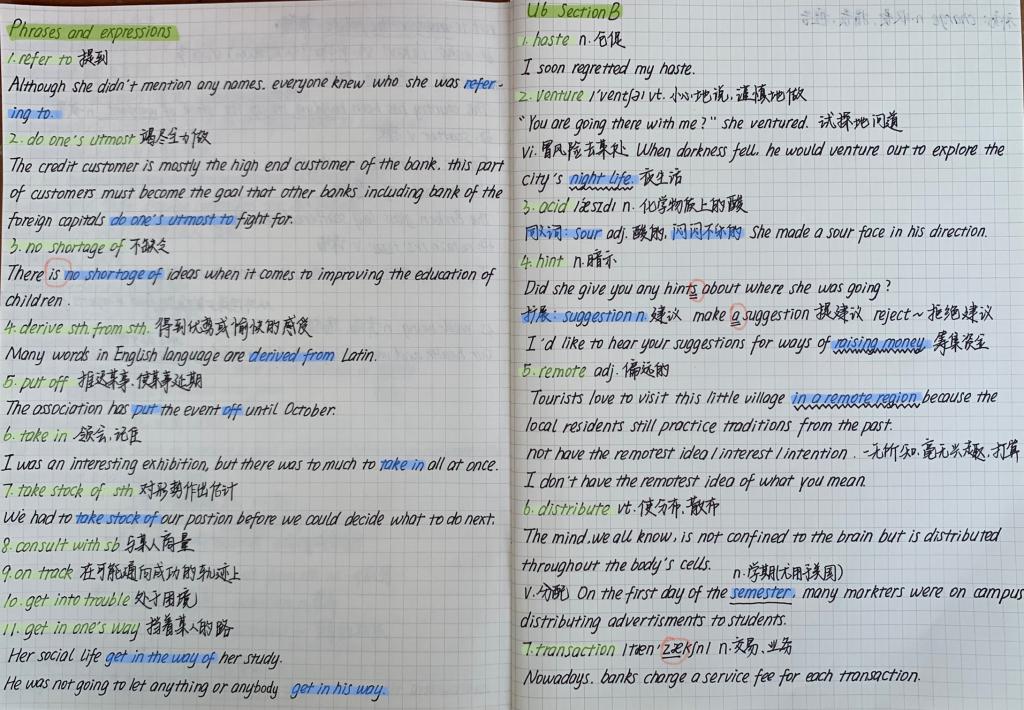 Phrases and expressions
1. refer to 提到
Although she didn't mention any names. everyone knew who she was refer-
ing to.
2. do one's utmost 竭尽全力做
The credit customer is mostly the high end customer of the bank. this part
of customers must become the goal that other banks including bank of the
foreign capitals do one's utmost to fight for.
3. no shortage of 不缺乏
There is no shortage of ideas when it comes to improving the education of
children.
4. derive sth. from sth. 得到优势或愉快的感受
Many words in English language are derived from Latin.
5. put off 推迟某事.使某事延期
The association has put the event off until October.
6. take in 领会.记住
I was an interesting exhibition, but there was to much to take in all at once.
7. take stock of sth 对形势作出估计
We had to take stock of our postion before we could decide what to do next.
8. consult with sb 与某人商量
9. on track 在可能通向成功的轨迹上
10. get into trouble 处于困境
11. get in one's way 挡着某人的路
Her social life get in the way of her study.
He was not going to let anything or anybody get in his way.
U6 Section B
1. haste n. 仓促
I soon regretted my haste.
2. venture /'ventʃə/ vt. 小心地说, 谨慎地做
"You are going there with me?" she ventured. 试探地问道
vi. 冒风险去某处 When darkness fell, he would venture out to explore the
city's night life. 夜生活
3. acid /'æsɪd/ n. 化学物质上的酸
同义词: sour adj. 酸的, 闷闷不乐的 She made a sour face in his direction.
4. hint n. 暗示
Did she give you any hints about where she was going?
扩展: suggestion n. 建议 make a suggestion 提建议 reject ~ 拒绝建议
I'd like to hear your suggestions for ways of raising money. 筹集资金
5. remote adj. 偏远的
Tourists love to visit this little village in a remote region because the
local residents still practice traditions from the past.
not have the remotest idea / interest / intention. 一无所知.毫无兴趣.打算
I don't have the remotest idea of what you mean.
6. distribute vt. 使分布.散布
The mind, we all know, is not confined to the brain but is distributed
throughout the body's cells. n.学期(尤用于美国)
v. 分配 On the first day of the semester, many markters were on campus
distributing advertisments to students.
7. transaction /træn'zækʃn/ n. 交易.业务
Nowadays. banks charge a service fee for each transaction.